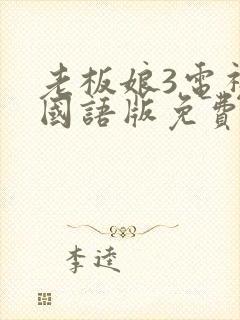 老板娘3電視
國語版免費
李逵